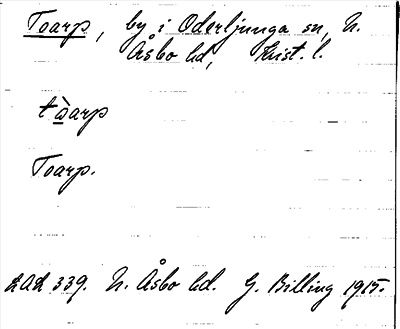 Toarp, by i Oderljunga sn, N.
Åsbo hd, Krist. l.
tòarp
Toarp.
LAL 339. N. Åsbo hd. G. Billing 1915.